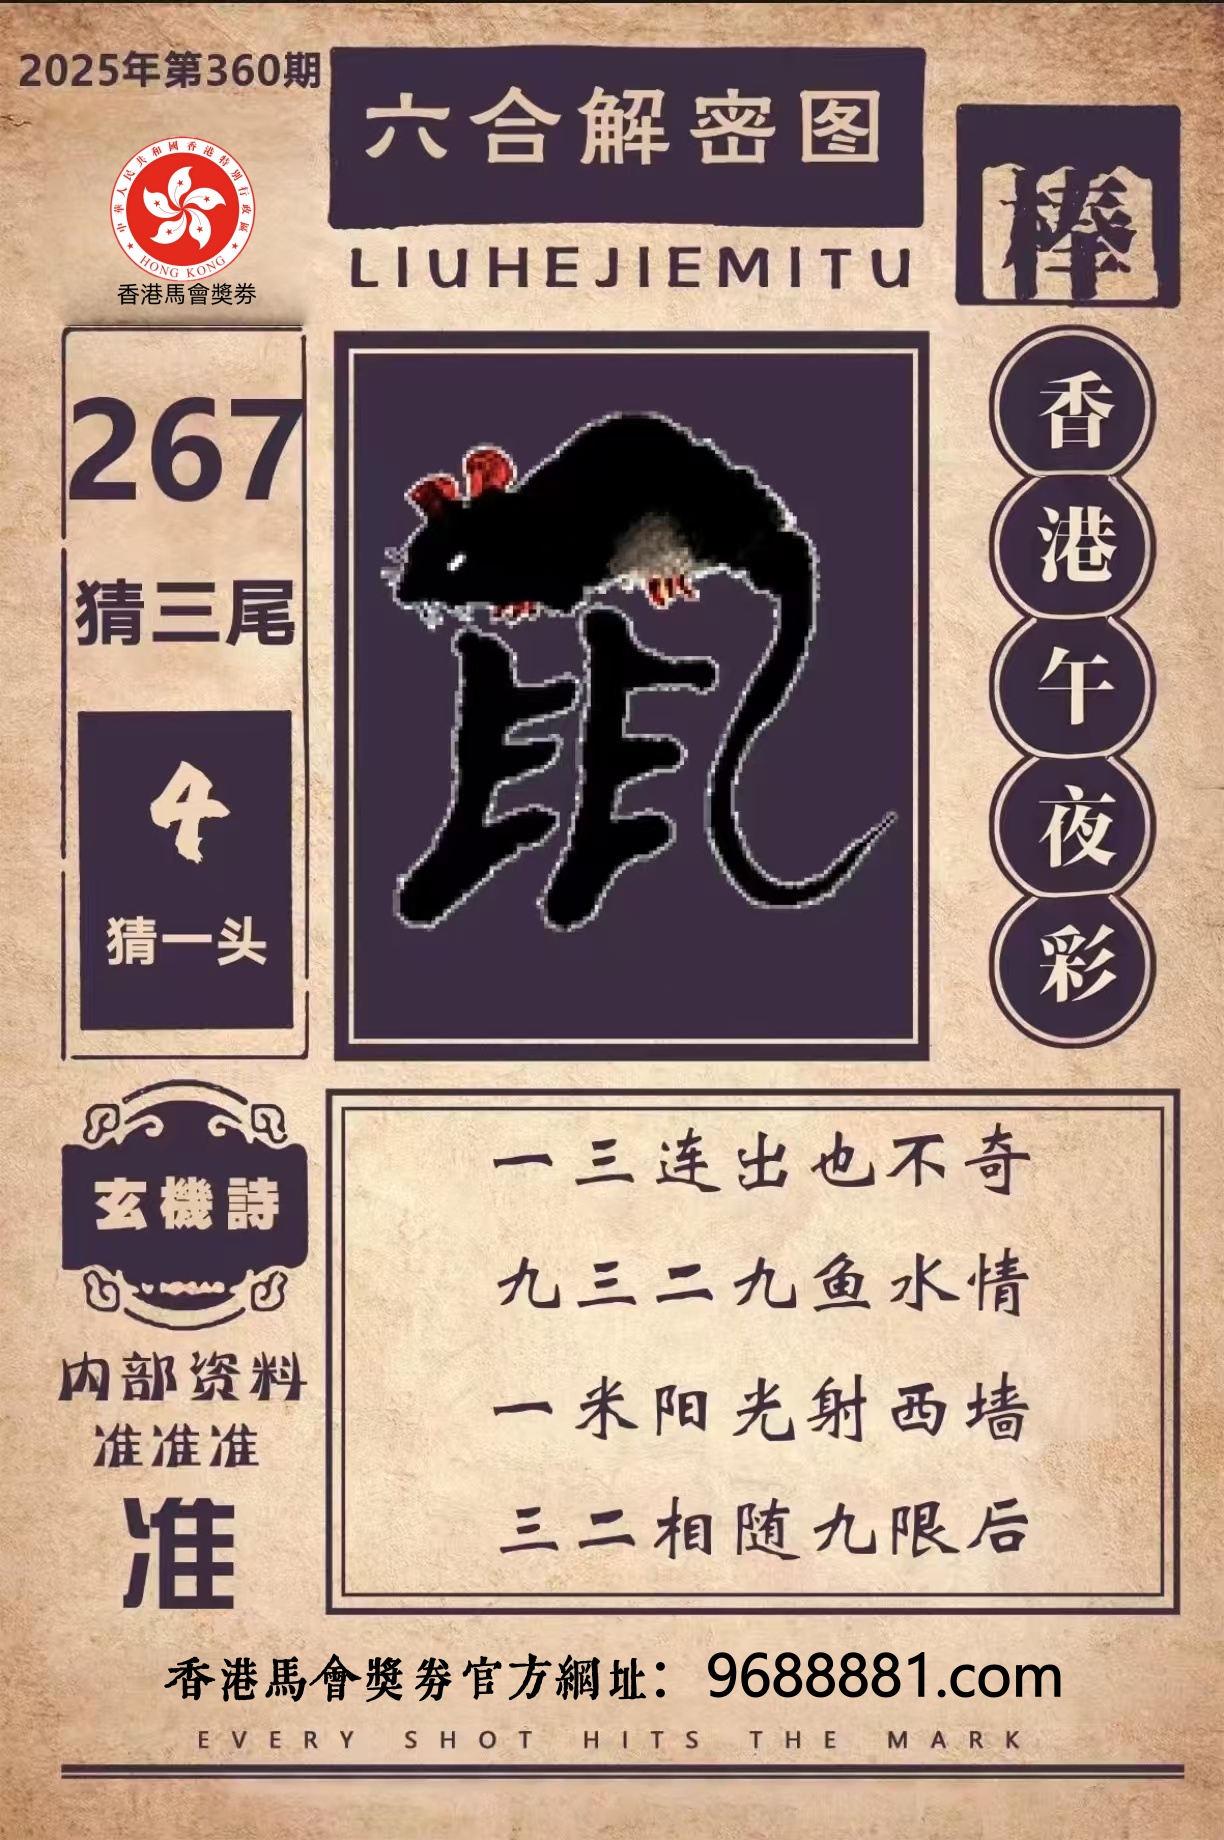 2025年第360期
六合解密图
LIUHEJIEMITU
棒
中華人民共和國香港特別行政區
HONG KONG
香港馬會獎券
267
猜三尾
4
猜一头
鼠
香港午夜彩
玄機詩
内部资料
准准准
准
一三连出也不奇
九三二九鱼水情
一米阳光射西墙
三二相随九限后
香港馬會獎券官方網址：9688881.com
EVERY SHOT HITS THE MARK